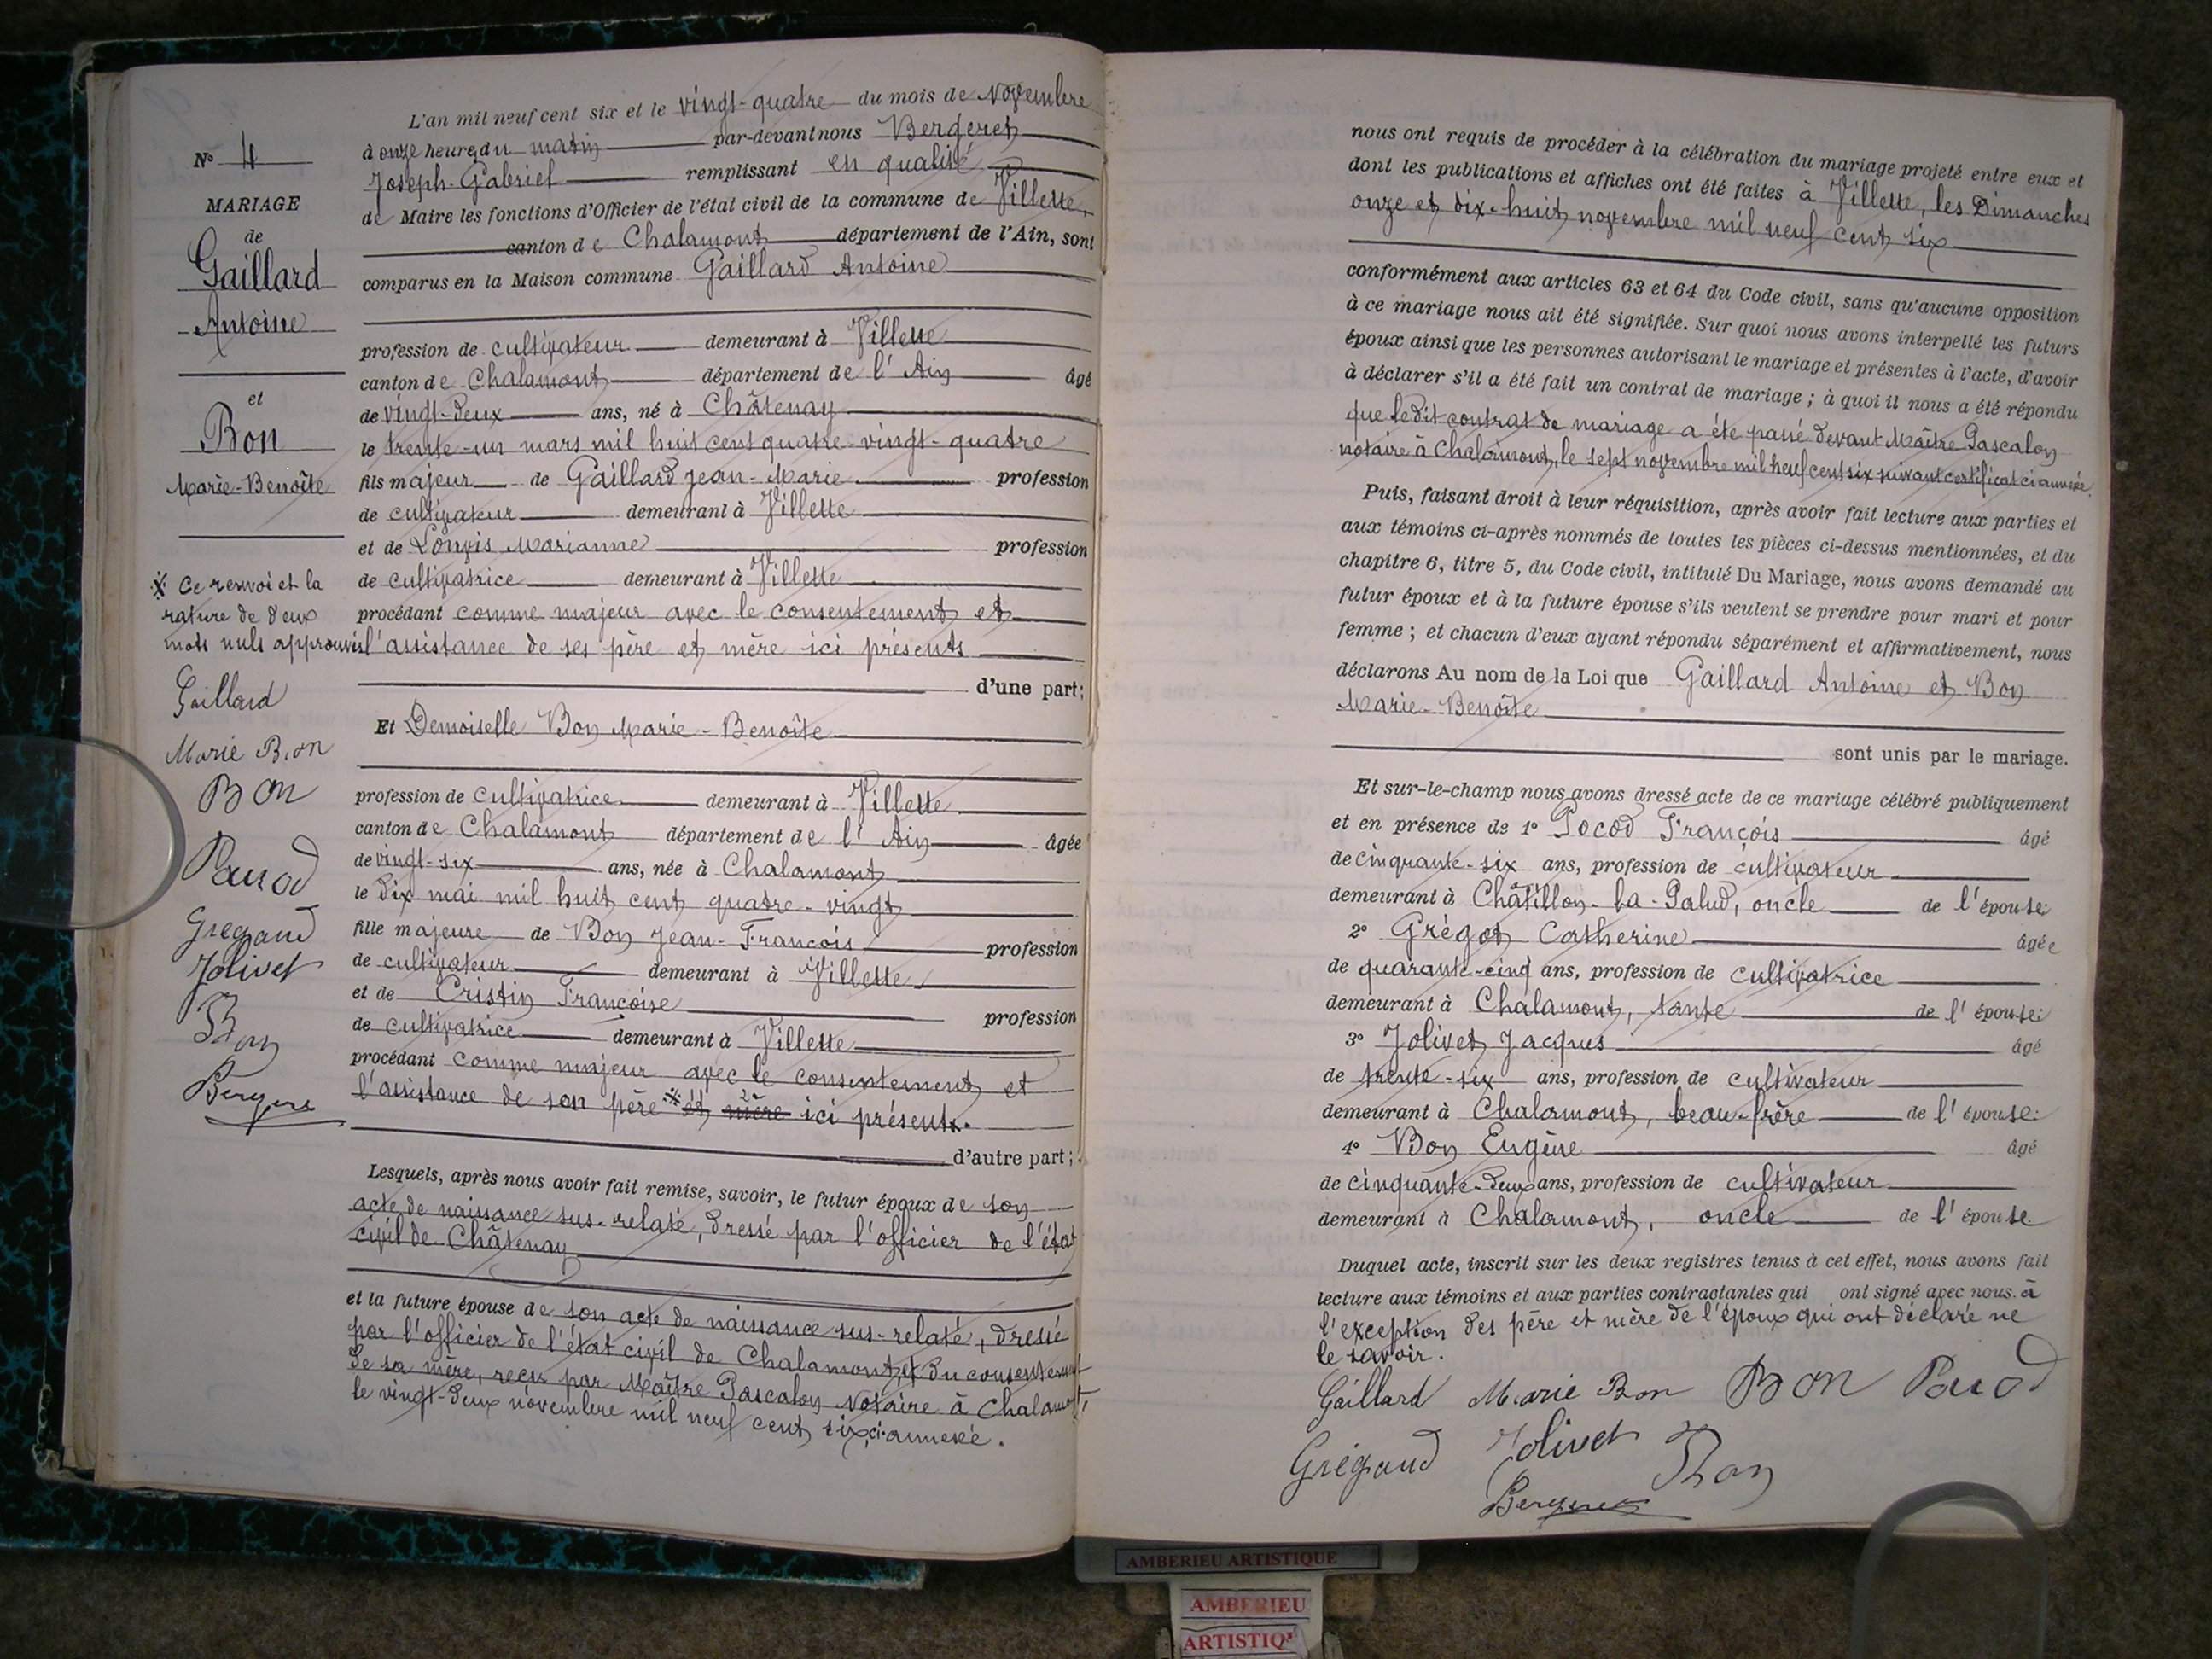 N° 4
MARIAGE
de
Gaillard
Antoine
et
Bon
Marie-Benoîte
Ce renvoi et la
rature de deux
mots nuls approuvés
Gaillard
Marie Bon
Bon
Pocod
Jolivet
Bon
L'an mil neuf cent six et le vingt-quatre du mois de novembre
à onze heures du matin par-devant nous Bergeret
Joseph-Gabriel remplissant en qualité
de Maire les fonctions d'Officier de l'état civil de la commune de Villette,
canton de Chalamont département de l'Ain, sont
comparus en la Maison commune Gaillard Antoine
profession de cultivateur demeurant à Villette
canton de Chalamont département de l'Ain âgé
de vingt-deux ans, né à Châtenay
le trente-un mars mil huit cent quatre-vingt-quatre
fils majeur de Gaillard Jean-Marie profession
de cultivateur demeurant à Villette
et de Marianne profession
de cultivatrice demeurant à Villette
procédant comme majeur avec le consentement et
l'assistance de ses père et mère ici présents
d'une part;
Et Demoiselle Bon Marie-Benoîte
profession de cultivatrice demeurant à Villette
canton de Chalamont département de l'Ain âgée
de vingt-six ans, née à Chalamont
le dix mai mil huit cent quatre-vingt
fille majeure de Bon Jean-François profession
de cultivateur demeurant à Villette
et de Cristin Françoise profession
de cultivatrice demeurant à Villette
procédant comme majeur avec le consentement et
l'assistance de son père et mère ici présent.
d'autre part;
Lesquels, après nous avoir fait remise, savoir, le futur époux de son
acte de naissance sus-relaté, dressé par l'officier de l'état
civil de Châtenay
et la future épouse de son acte de naissance sus-relaté, dressé
par l'officier de l'état civil de Chalamont et du consentement
de sa mère, reçu par Maître Pascalon Notaire à Chalamont,
le vingt-deux novembre mil neuf cent six, ci-annexée.
nous ont requis de procéder à la célébration du mariage projeté entre eux et
dont les publications et affiches ont été faites à Villette, les Dimanches
onze et dix-huit novembre mil neuf cent six
conformément aux articles 63 et 64 du Code civil, sans qu'aucune opposition
à ce mariage nous ait été signifiée. Sur quoi nous avons interpellé les futurs
époux ainsi que les personnes autorisant le mariage et présentes à l'acte, d'avoir
à déclarer s'il a été fait un contrat de mariage ; à quoi il nous a été répondu
que ledit contrat de mariage a été passé devant Maître Pascalon
notaire à Chalamont, le sept novembre mil neuf cent six suivant certificat ci annexé.
Puis, faisant droit à leur réquisition, après avoir fait lecture aux parties et
aux témoins ci-après nommés de toutes les pièces ci-dessus mentionnées, et du
chapitre 6, titre 5, du Code civil, intitulé Du Mariage, nous avons demandé au
futur époux et à la future épouse s'ils veulent se prendre pour mari et pour
femme ; et chacun d'eux ayant répondu séparément et affirmativement, nous
déclarons Au nom de la Loi que Gaillard Antoine et Bon
Marie-Benoîte
sont unis par le mariage.
Et sur-le-champ nous avons dressé acte de ce mariage célébré publiquement
et en présence de 1° Pocod François âgé
de cinquante-six ans, profession de cultivateur
demeurant à Châtillon-la-Palud, oncle de l'épouse;
2° Catherine âgée
de quarante-cinq ans, profession de cultivatrice
demeurant à Chalamont, tante de l'épouse;
3° Jolivet Jacques âgé
de trente-six ans, profession de cultivateur
demeurant à Chalamont, beau-frère de l'épouse;
4° Bon Eugène âgé
de cinquante-deux ans, profession de cultivateur
demeurant à Chalamont, oncle de l'épouse
Duquel acte, inscrit sur les deux registres tenus à cet effet, nous avons fait
lecture aux témoins et aux parties contractantes qui ont signé avec nous. à
l'exception des père et mère de l'époux qui ont déclaré ne
le savoir.
Gaillard Marie Bon Bon Pocod
Jolivet Bon
Bergeret
AMBERIEU ARTISTIQUE
AMBERIEU
ARTISTIQ